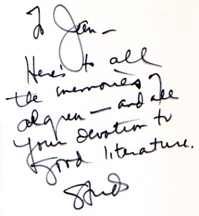 To Jean—
Here's to all
the memories of
Algren—and all
your devotion to
good literature.
Studs